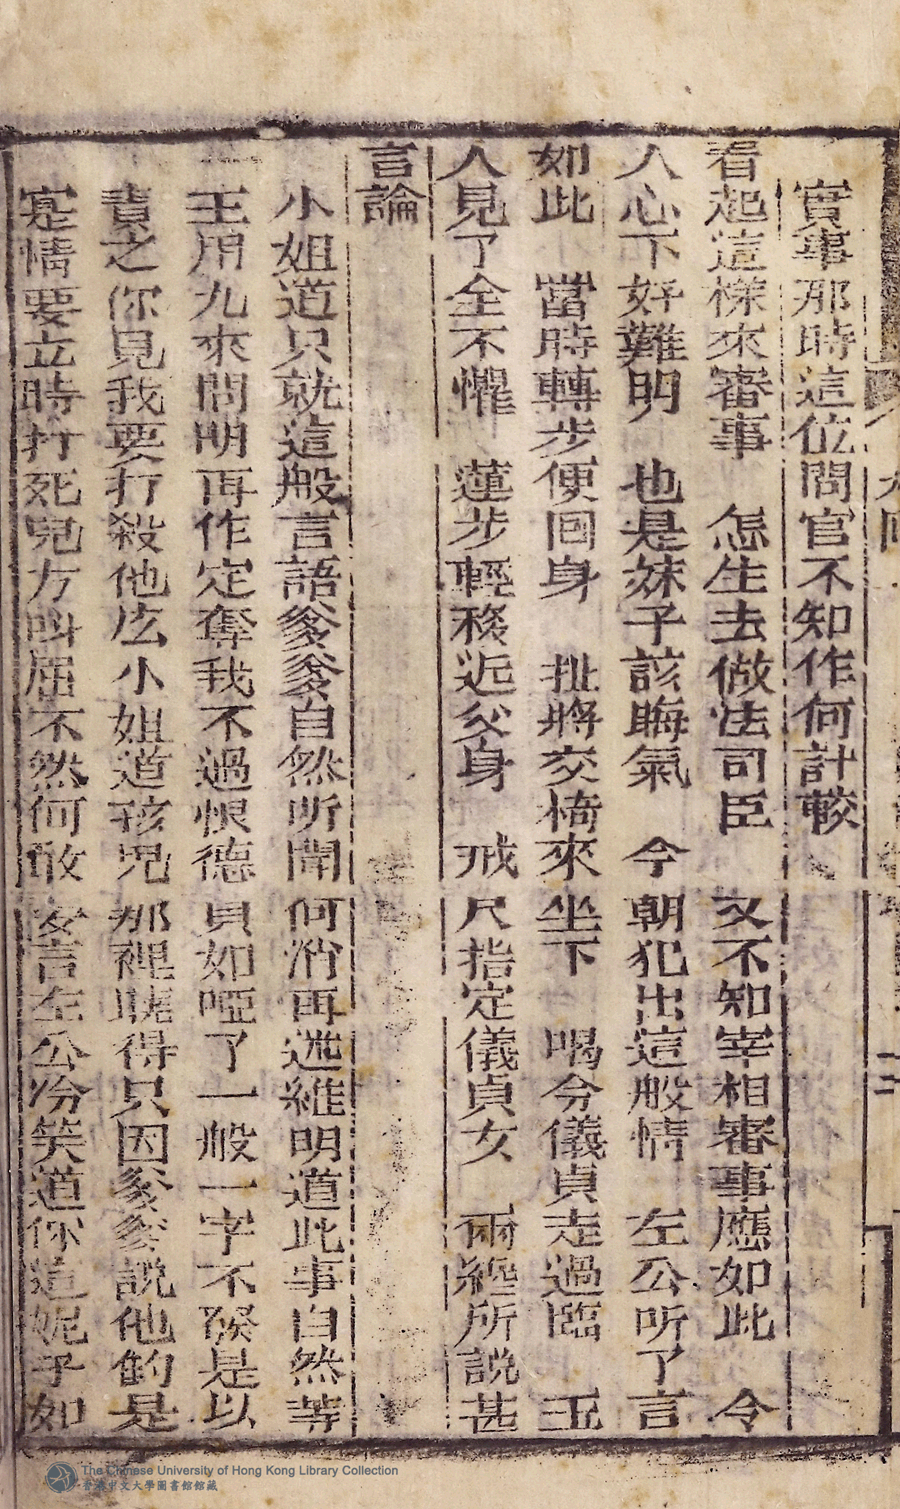 實事那時這位問官不知作何計較
看起這樣來審事 怎生去做法司臣 又不知宰相審事應如此 令
人心下好難明 也是妹子該晦氣 今朝犯出這般情 左公听了言
如此 當時轉步便回身 扯將交椅來坐下 喝令儀貞走過臨 玉
人見了全不懼 蓮步輕移近父身 戒尺指定儀貞女 兩經所說甚
言論
小姐道只就這般言語爹爹自然听聞何消再述維明道此事自然等
王用九來問明再作定奪我不過恨德貝如啞了一般一字不發是以
責之你見我要打殺他庅小姐道孩児那裡曉得只因爹爹說他的是
寔情要立時打死児方呌屈不然何敢妄言左公冷笑道你道妮子如
The Chinese University of Hong Kong Library Collection
香港中文大學圖書館館藏